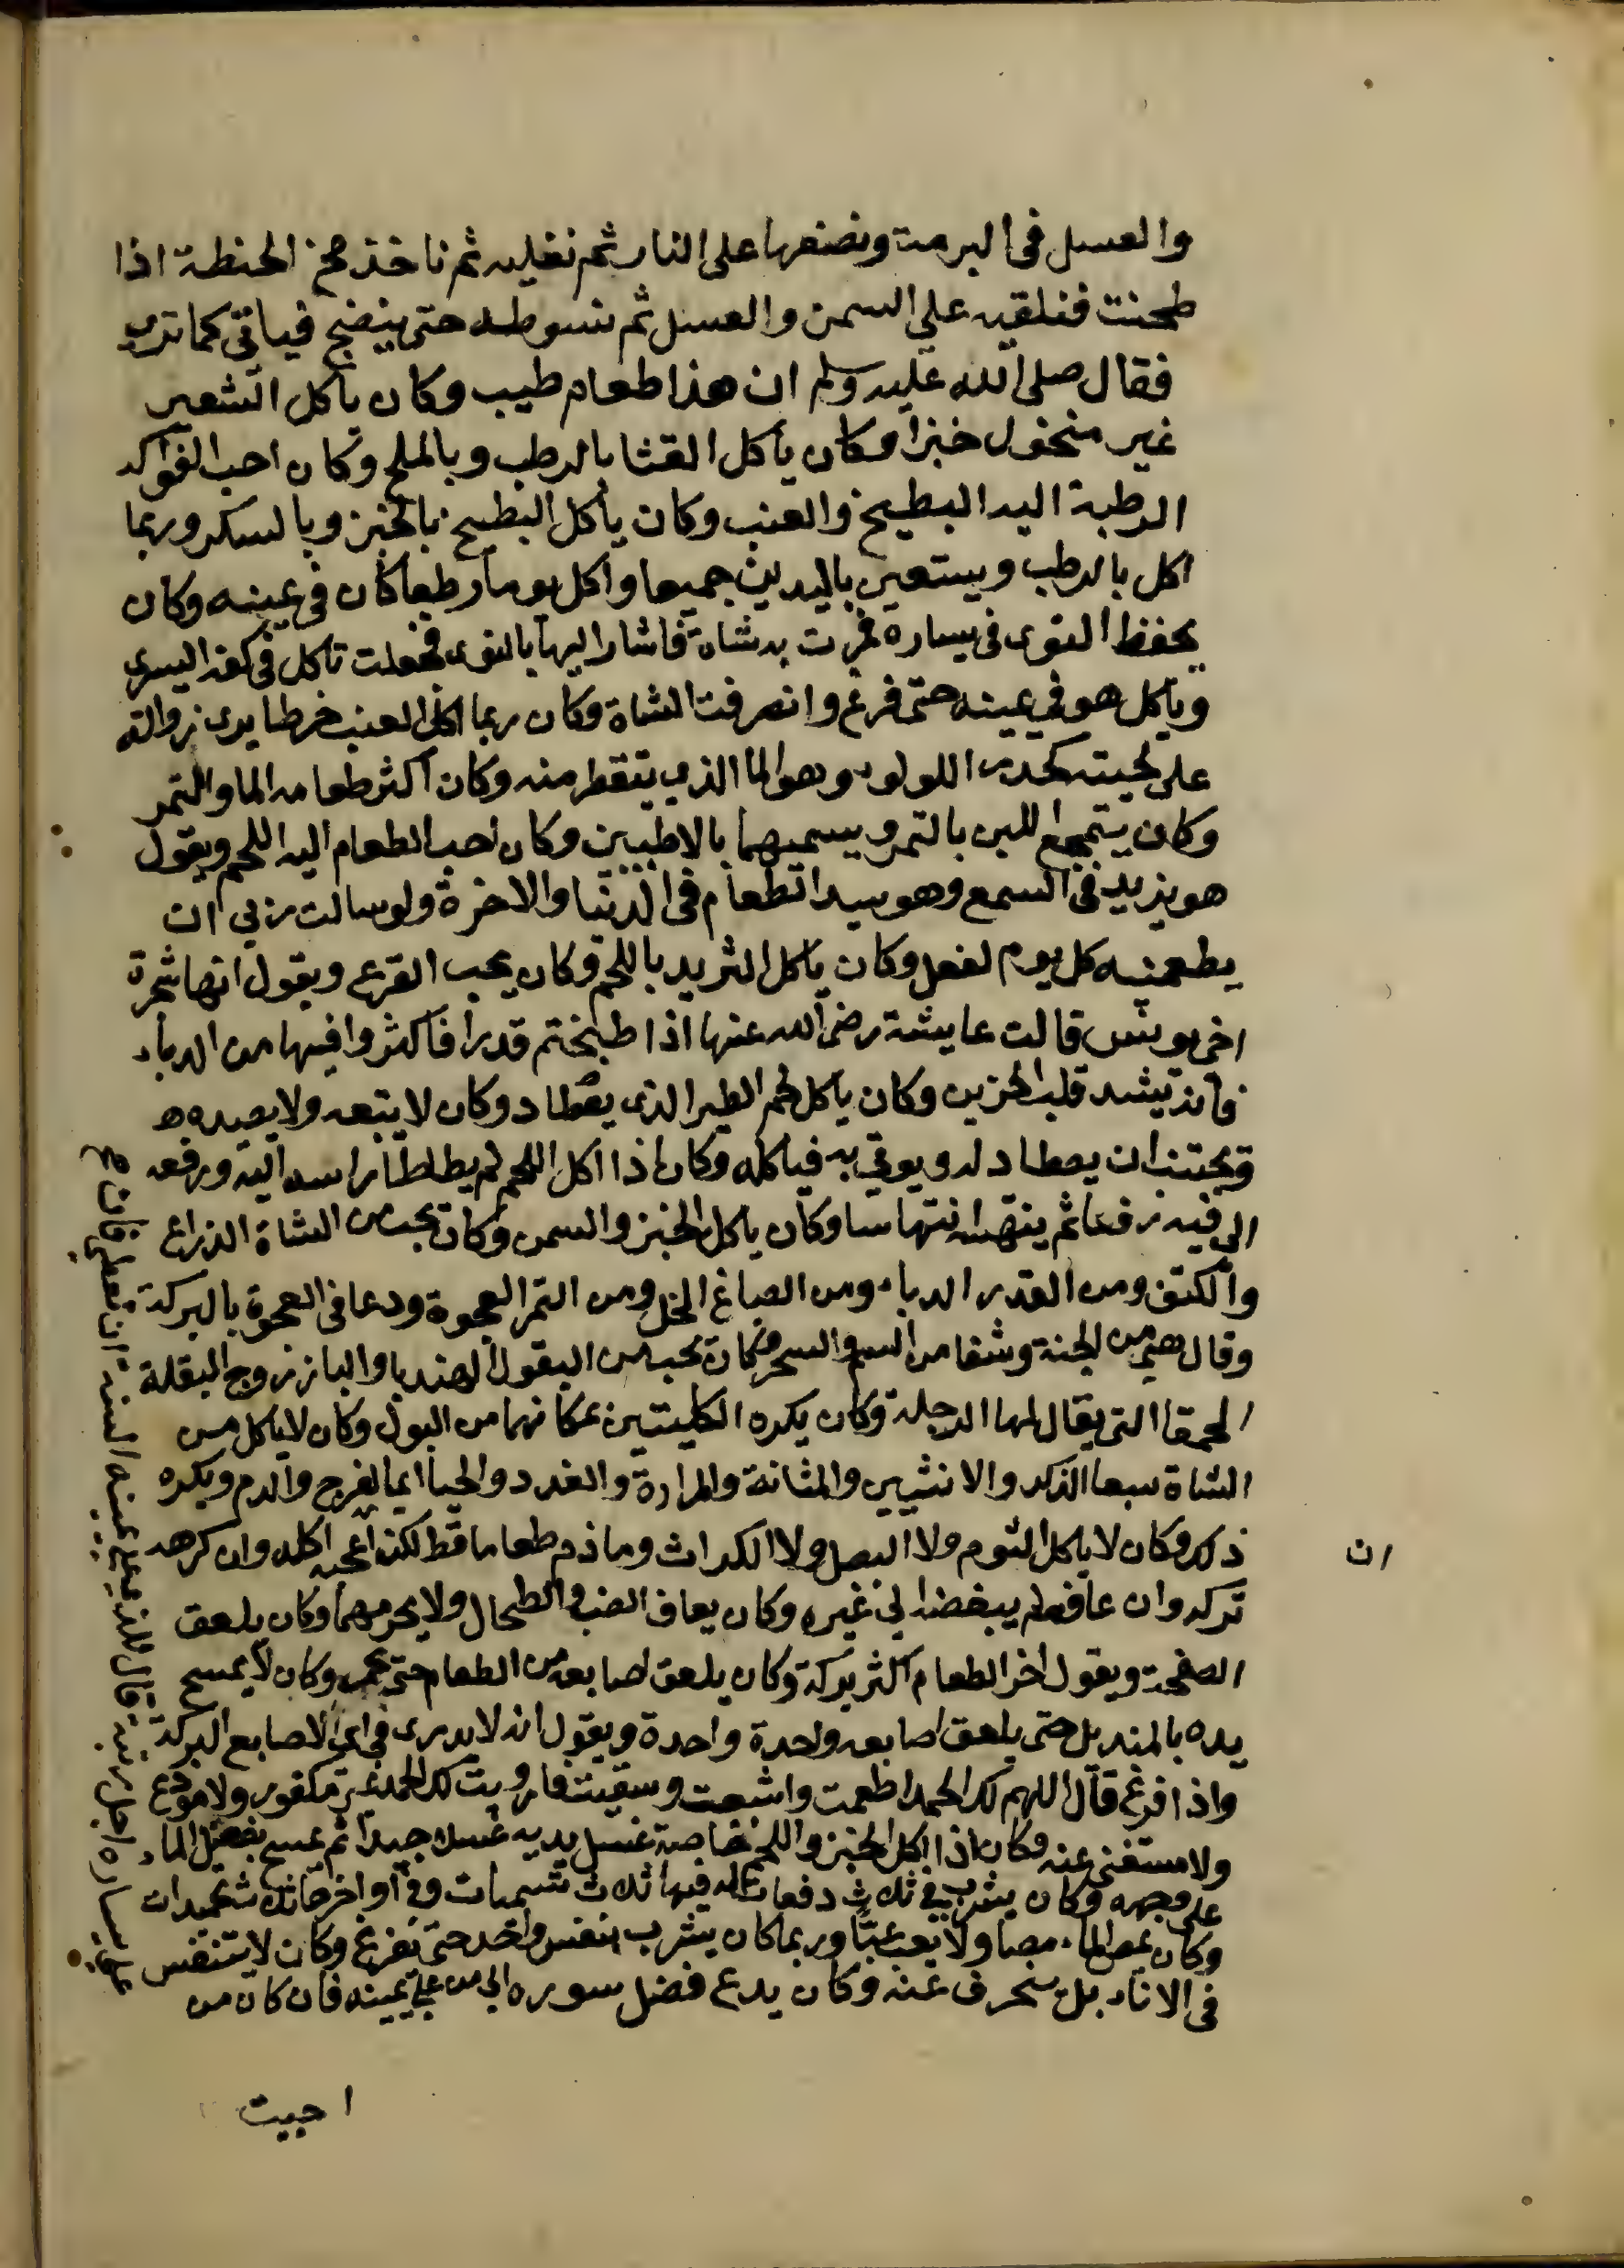 والعسل في البرمة ونضعها على النار ثم نغليه ثم ناخذ مخ الحنطة اذا
طحنت فنلقيه على السمن والعسل ثم نسوطه حتى ينضج فياتي كما ترى
فقال صلى الله عليه وسلم ان هذا طعام طيب وكان ياكل الشعير
غير منخول خبزا وكان ياكل القثا بالرطب وبالملح وكان احب الفواكه
الرطبة اليه البطيخ والعنب وكان ياكل البطيخ بالخبز وبالسكر وربما
اكل بالرطب ويستعين باليدين جميعا واكل يوما رطبا كان في يمينه وكان
يحفظ النوى في يساره فمرت به شاة فاشار اليها بالنوى فجعلت تاكل في كفه اليسرى
وياكل هو في يمينه حتى فرغ وانصرفت الشاة وكان ربما اكل العنب خرطا يرى زواله
على لحيته كحدر اللولو وهو الما الذي يتقطر منه وكان اكثر طعامه الما والتمر
وكان يتمجع اللبن بالتمر ويسميهما بالاطيبين وكان احب الطعام اليه اللحم ويقول
هو يزيد في السمع وهو سيد الطعام في الدنيا والاخرة ولو سالت ربي ان
يطعمنيه كل يوم لفعل وكان ياكل الثريد باللحم وكان يحب القرع ويقول انها شجرة
اخي يونس قالت عايشة رضي الله عنها اذا طبختم قدرا فاكثروا فيها من الدباء
فانه يشد قلب الحزين وكان ياكل لحم الطير الذي يصطاد وكان لا يتبعه ولا يصيده
ويحب ان يصطاد له ويوتى به فياكله وكان اذا اكل اللحم لم يطاطا راسه اليه ورفعه
الى فيه رفعا ثم ينتهشه انتهاشا وكان ياكل الخبز والسمن وكان يحب من الشاة الذراع
والكتف ومن القدر الدباء ومن الصباغ الخل ومن التمر العجوة ودعا في العجوة بالبركة
وقال هي من الجنة وشفا من السم والسحر وكان يحب من البقول الهندبا والباذروج والبقلة
الحمقا التي يقال لها الرجلة وكان يكره الكليتين لمكانهما من البول وكان لا ياكل من
الشاة سبعا الذكر والانثيين والمثانة والمرارة والغدد والحيا اي الفرج والدم ويكره
ذلك وكان لا ياكل الثوم ولا البصل ولا الكراث وما ذم طعاما قط لكن ان اعجبه اكله وان كرهه
تركه وان عافه لم يبغضه الى غيره وكان يعاف الضب والطحال ولا يحرمهما وكان يلعق
الصفحة ويقول اخر الطعام اكثر بركة وكان يلعق اصابعه من الطعام حتى تحمر وكان لا يمسح
يده بالمنديل حتى يلعق اصابعه واحدة واحدة ويقول انه لا يدرى في اي الاصابع البركة
واذا فرغ قال اللهم لك الحمد اطعمت واشبعت وسقيت فارويت لك الحمد غير مكفور ولا مودع
ولا مستغنى عنه وكان اذا اكل الخبز واللحم خاصة غسل يديه غسلا جيدا ثم يمسح بفضل الماء
على وجهه وكان يشرب في ثلاث دفعات له فيها ثلاث تسميات وفي اواخرها ثلاث تحميدات
وكان يمص الماء مصا ولا يعب عبا وربما كان يشرب بنفس واحد حتى يفرغ وكان لا يتنفس
في الاناء بل ينحرف عنه وكان يدع فضل سوره الى من على يمينه فان كان من
على يساره اجل رتبة قال للذي على يمينه السنة ان تعطى فان
ان
اجيت